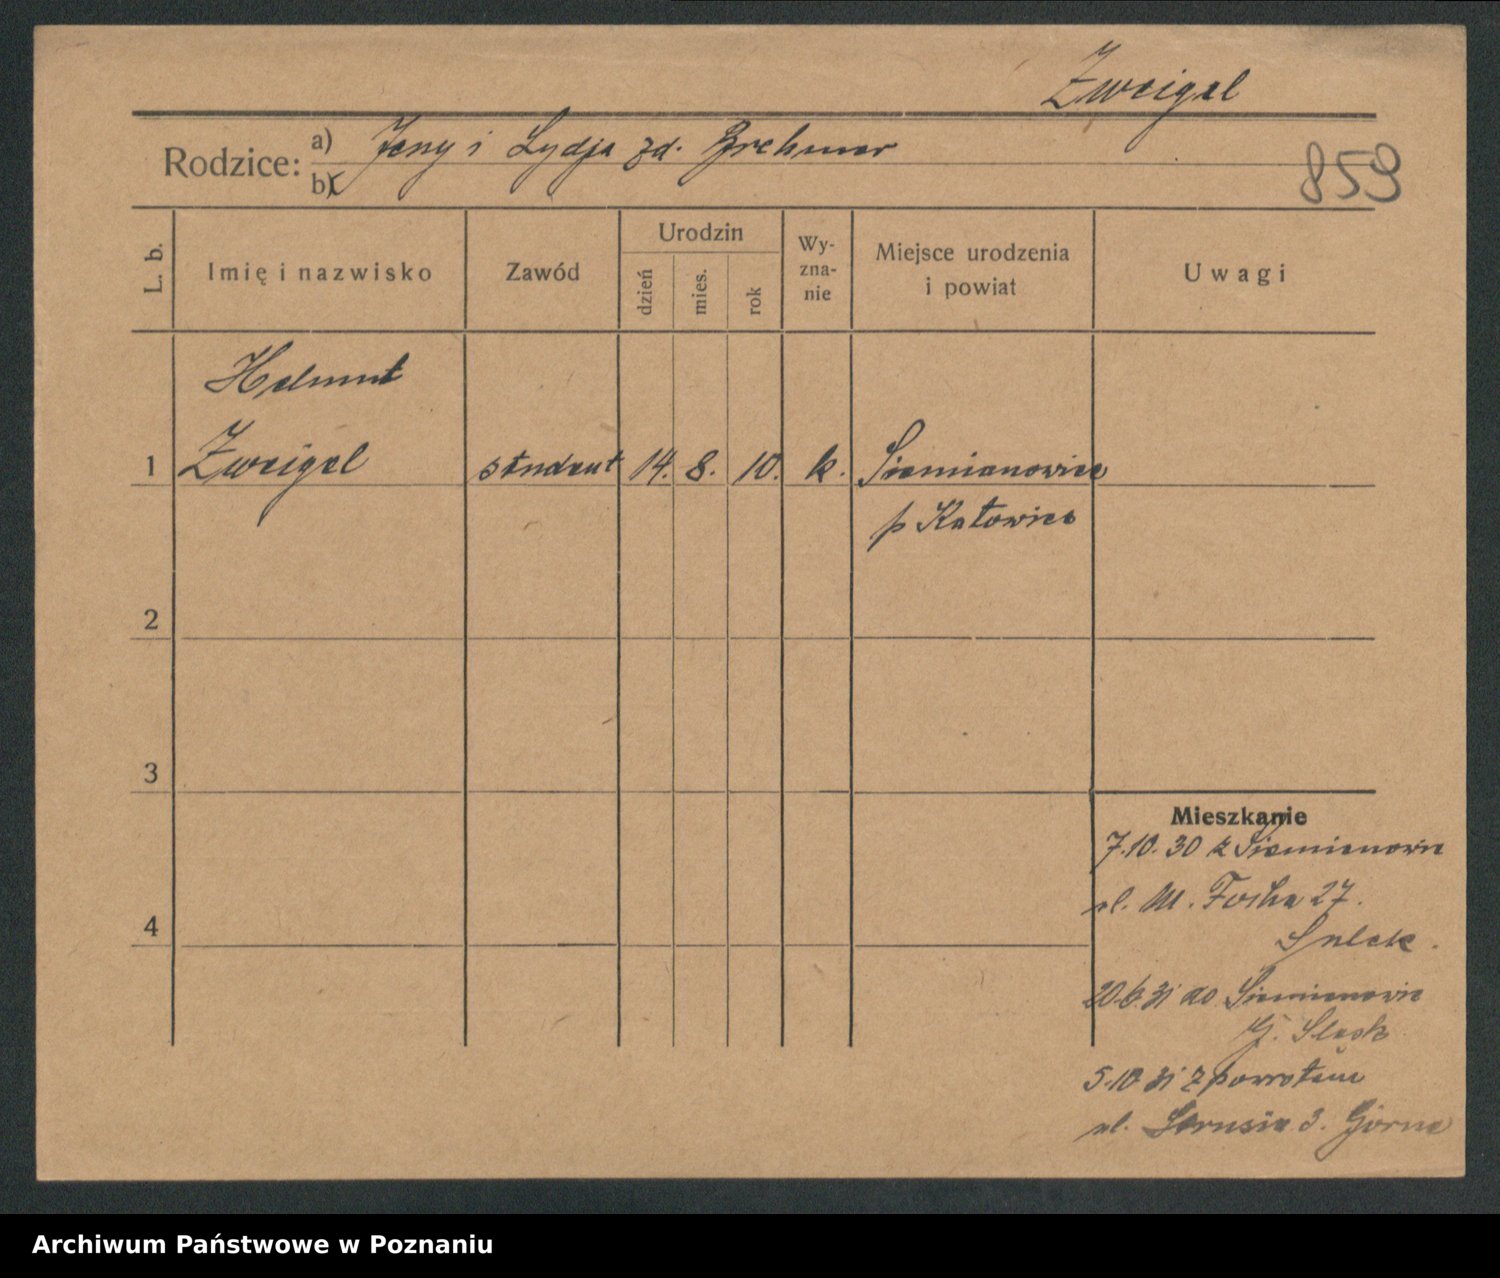 Zweigel
Rodzice: a) Jerzy i Lydja zd. Brehmer
b)
859
L. b.
Imię i nazwisko
Zawód
Urodzin
dzień
mies.
rok
Wy-
zna-
nie
Miejsce urodzenia
i powiat
Uwagi
Helmut
1 Zweigel student 14. 8. 10. k. Siemianowice
p Katowice
2
3
4
Mieszkanie
7.10.30 z Siemianowic
ul. M. Focha 27.
20.6.31 do Siemianowic
G. Śląsk
5.10 31 z powrotem
ul. 3. Górna
Archiwum Państwowe w Poznaniu